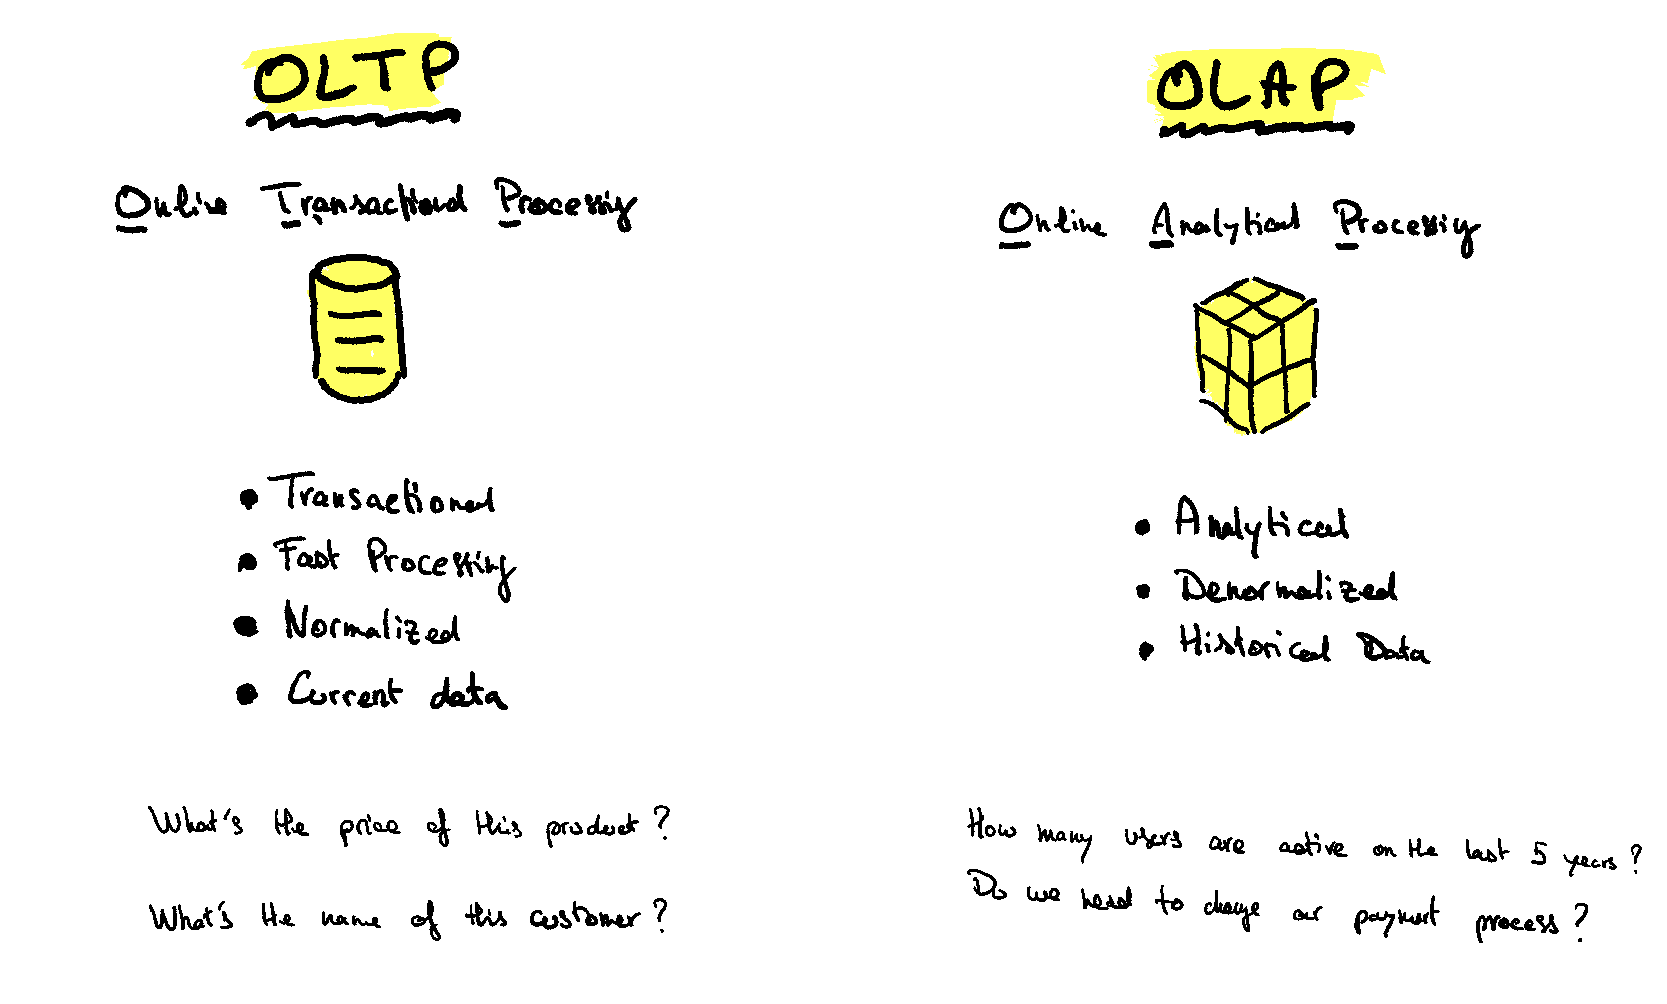 OLTP
Online Transactional Processing
• Transactional
• Fast Processing
• Normalized
• Current data
What's the price of this product?
What's the name of this customer?
OLAP
Online Analytical Processing
• Analytical
• Denormalized
• Historical Data
How many users are active on the last 5 years?
Do we need to change our payment process?